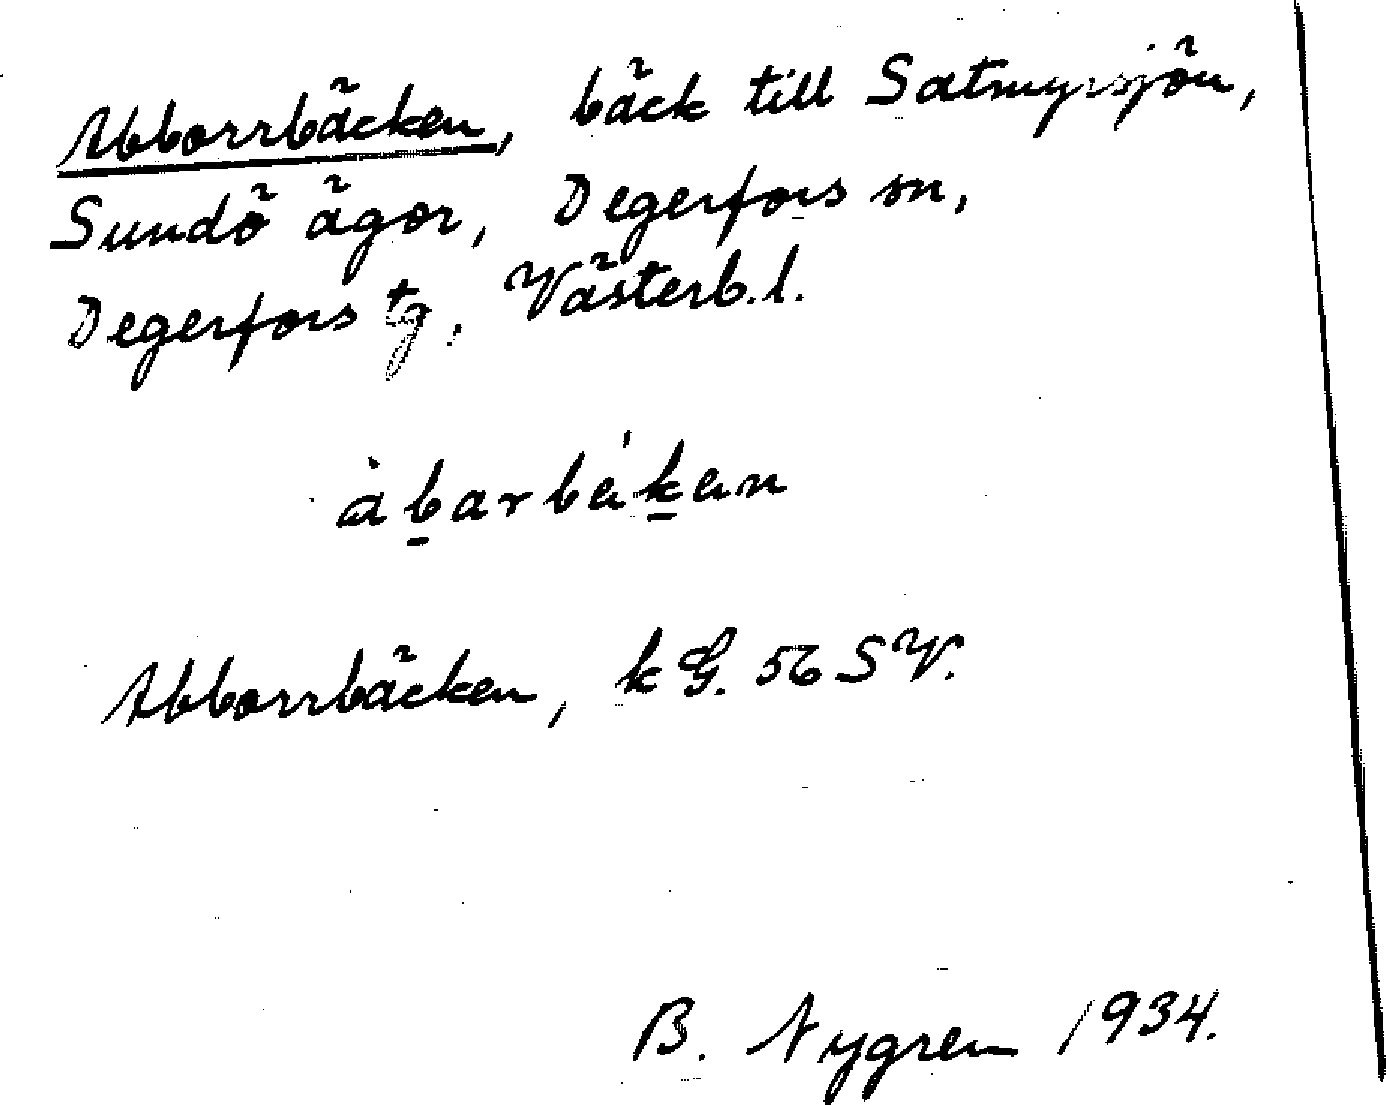 Abborrbäcken, bäck till Satmyrsjön,
Sundö ägor, Degerfors sn,
Degerfors tg, Västerb.l.
àbarbékan
Abborrbäcken, kG. 56 SV.
B. Nygren 1934.